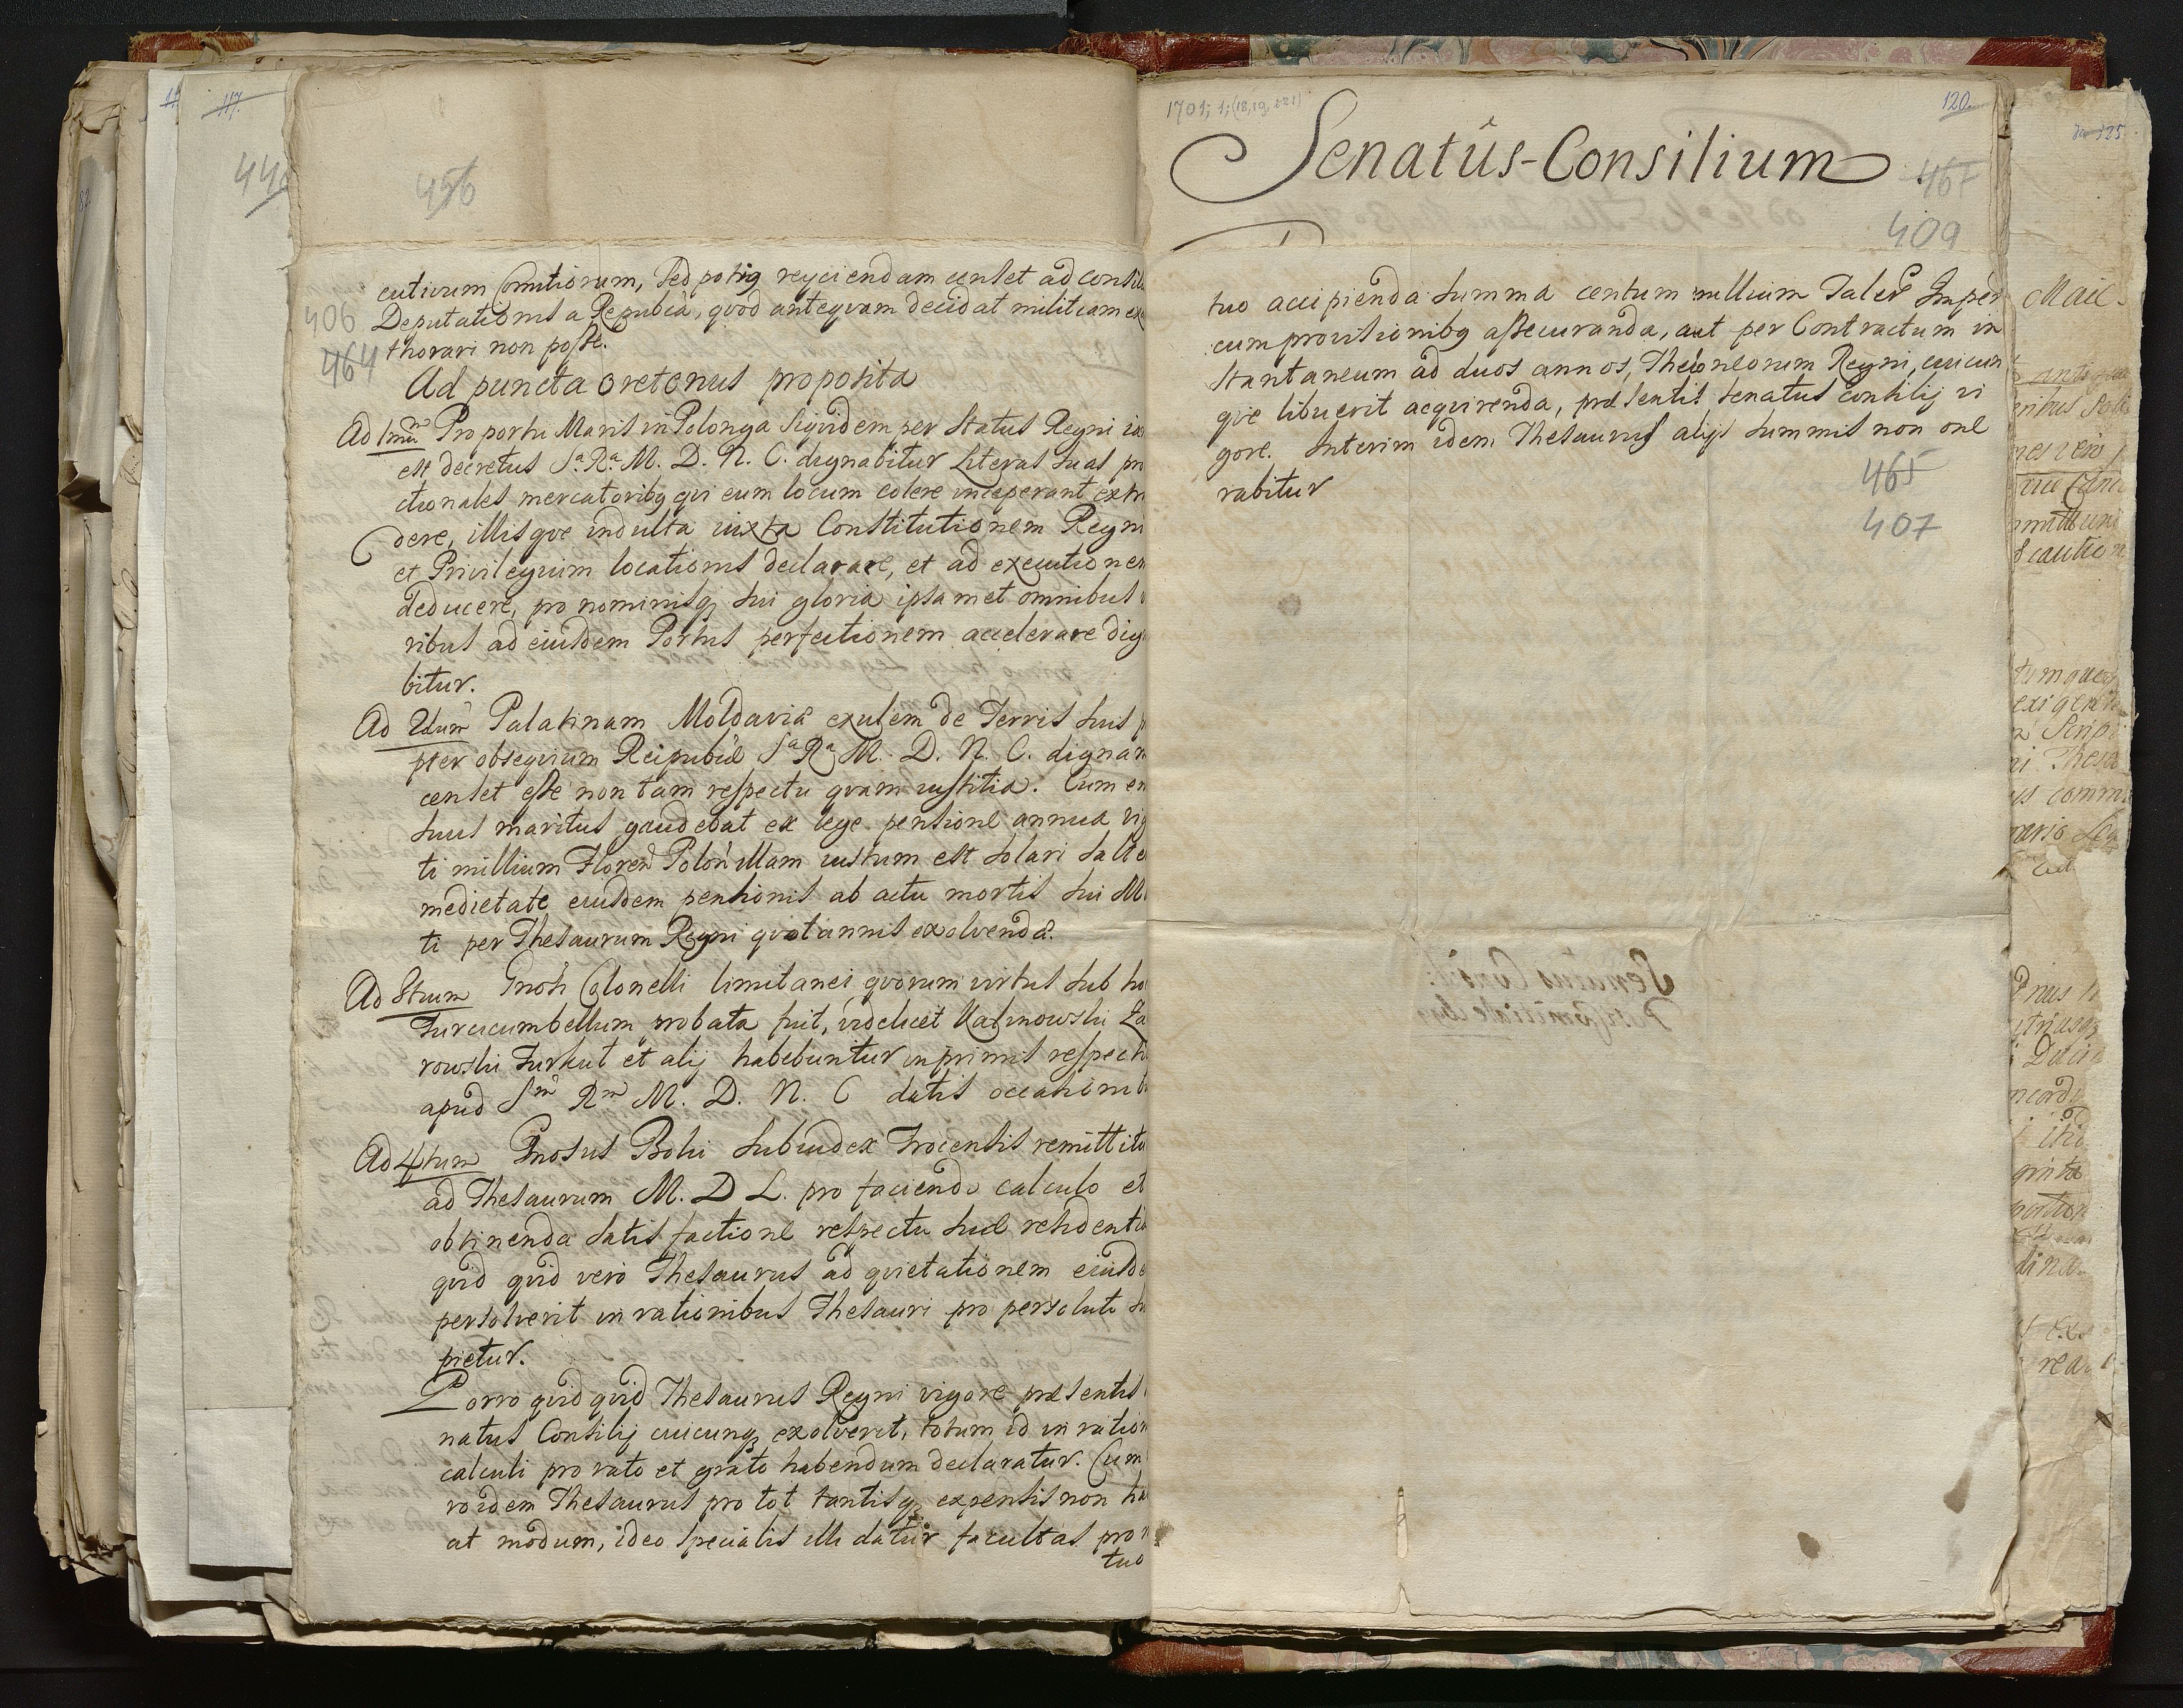 117.
456
cutivum Comitiorum, sed potig reyciendam censet ad consil
406
Deputationis a Republca, qvod anteqvam decidat militiam ex
464
thorari non posse.
Ad puncta oretenus proposita
Ad 1mum Pro portu Maris in Polonga siqvidem per Status Regni ia
est decretus Sa. Ra. M. D. N. C. dignabitur Literas suas pro
ctionales mercatoribg qvi eum locum colere inceperant extra
dere, illisqve indulta iuxta Constitutionem Regni
et Privilegium locationis declarare, et ad executionem
deducere, pro nominisq sui gloria ipsamet omnibus
ribus ad eiusdem Portus perfectionem accelerare dig
bitur.
Ad 2dum Palatinam Moldaviæ exulem de Terris suis
pter obseqvium Reipublcæ Sa Ra M. D. N. C. dignam
censet esse non tam respectu qvam iustitia. Cum en
suus maritus gaudebat ex lege pensione annua vig
ti millium Floren Polon illam iustum est solari salte
medietate eiusdem pensionis ab actu mortis sui Ma
ti per Thesaurum Regni qvotannis exolvenda.
Ad 3tium Gnosi Colonelli limitanei qvorum virtus sub ho
Turcicum bellum probata fuit, videlicet Kalinowski Za
rowski Turkut et alij habebuntur in primis respectu
apud Sm Rm M. D. N. C datis occasionib
Ad 4tum Gnosus Bolii Subiudex Trocensis remittitu
ad Thesaurum M. D L. pro faciendo calculo et
obtinenda satisfactione respectu suæ residentiæ
qvid qvid vero Thesaurus ad qvietationem eiusde
persolverit in rationibus Thesauri pro persoluto su
pietur.
Porro qvid qvid Thesaurus Regni vigore præsentis
natus Consilij cuicunq exolverit, totum id in ration
calculi pro rato et grato habendum declaratur. Cum
ro idem Thesaurus pro tot tantisq expensis non ha
at modum, ideo specialis illi datur facultas pro m
tuo
1701; 1; (18, 19, 221)
120.
Senatûs-Consilium
467
409
tuo accipienda summa centum millium Taler Imper
cum provisionibg assecuranda, aut per Contractum in
stantaneum ad duos annos, Theloneorum Regni, cuicun
qve libuerit acqvirenda, præsentis Senatus Consilij vi
gore. Interim idem Thesaurus alijs summis non one
rabitur
465
407
125